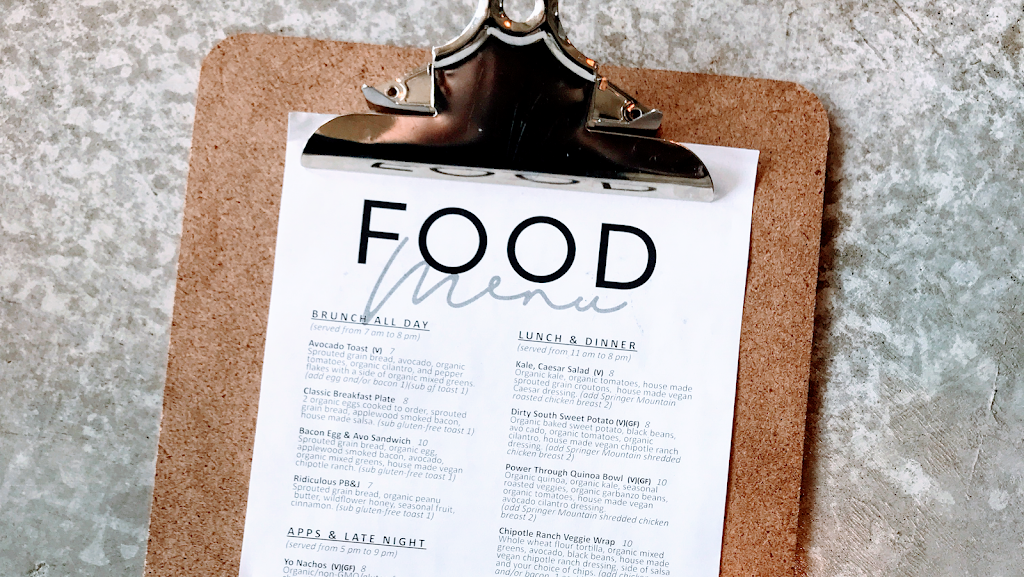 FOOD
Menu
BRUNCH ALL DAY
(served from 7 am to 8 pm)
Avocado Toast (V) 7
Sprouted grain bread, avocado, organic
tomatoes, organic cilantro, and pepper
flakes with a side of organic mixed greens.
(add egg and/or bacon 1)(sub gf toast 1)
Classic Breakfast Plate 8
2 organic eggs cooked to order, sprouted
grain bread, applewood smoked bacon,
house made salsa. (sub gluten-free toast 1)
Bacon Egg & Avo Sandwich 10
Sprouted grain bread, organic egg,
applewood smoked bacon, avocado,
organic mixed greens, house made vegan
chipotle ranch. (sub gluten-free toast 1)
Ridiculous PB&J 7
Sprouted grain bread, organic peanu
butter, wildflower honey, seasonal fruit,
cinnamon. (sub gluten-free toast 1)
APPS & LATE NIGHT
(served from 5 pm to 9 pm)
Yo Nachos (V)(GF) 8
LUNCH & DINNER
(served from 11 am to 8 pm)
Kale, Caesar Salad (V) 8
Organic kale, organic tomatoes, house made
sprouted grain croutons, house made vegan
Caesar dressing. (add Springer Mountain
roasted chicken breast 2)
Dirty South Sweet Potato (V)(GF) 8
Organic baked sweet potato, black beans,
avo cado, organic tomatoes, organic
cilantro, house made vegan chipotle ranch
dressing. (add Springer Mountain shredded
chicken breast 2)
Power Through Quinoa Bowl (V)(GF) 10
Organic quinoa, organic kale, seasonal
roasted veggies, organic garbanzo beans,
organic tomatoes, house made vegan
avocado cilantro dressing.
(add Springer Mountain shredded chicken
breast 2)
Chipotle Ranch Veggie Wrap 10
Whole wheat flour tortilla, organic mixed
greens, avocado, black beans, house made
vegan chipotle ranch dressing, side of salsa
and your choice of chips. (add chicken
and/or bacon